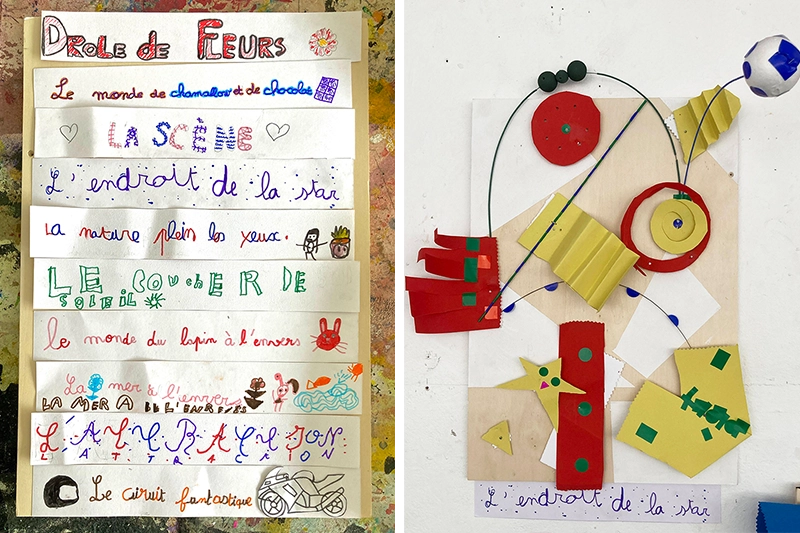 DRoLe de FLEURS
Le monde de chamallow et de chocolat
LA SCÈNE
L'endroit de la star
La nature plein les yeux.
LE COUCHER DE
SOLEIL
le monde du lapin à l'envers
La mer à l'envers
LA MER A L'ENVERS
L'ATTRACTION
L'ATTRACTION
Le circuit fantastique
L'endroit de la star